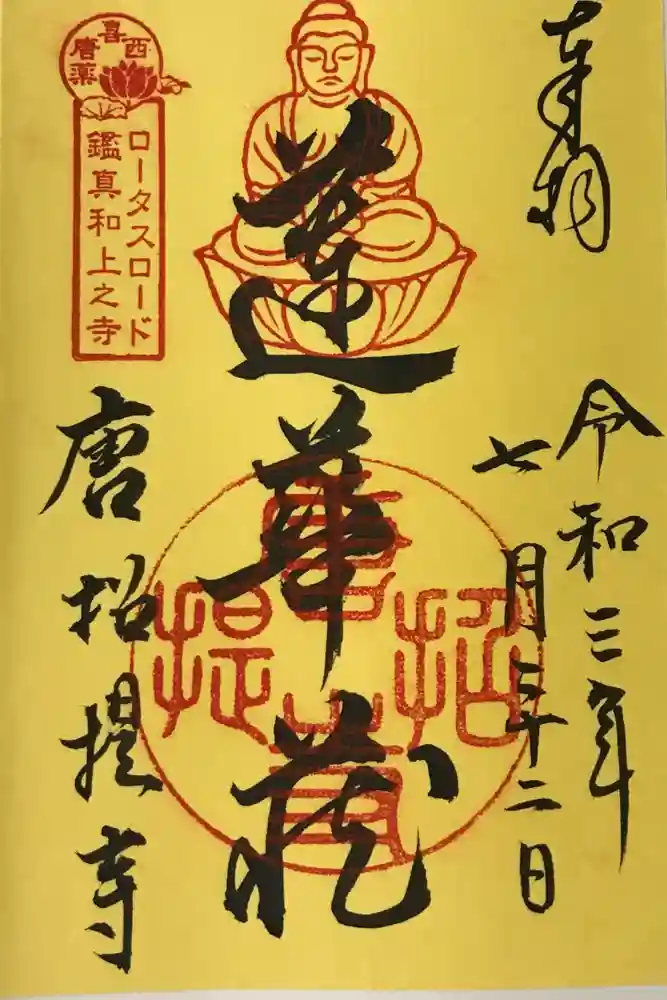 奉拝
令和三年
七月二十二日
蓮華蔵
唐招提
西喜唐薬
ロータスロード
鑑真和上之寺
唐招提寺